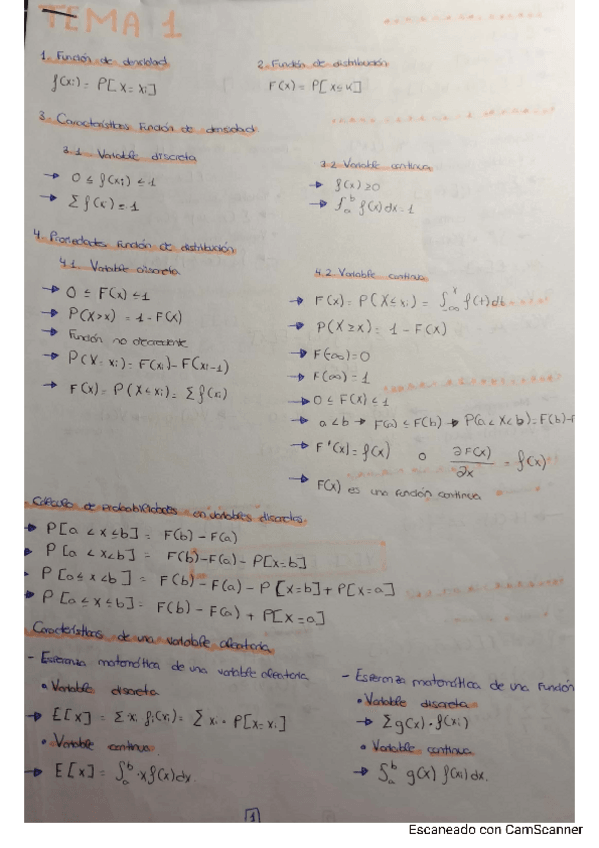 TEMA 1
1. Función de densidad
f(xi) = P[X = xi]
2. Función de distribución
F(x) = P[X ≤ x]
3. Características Función de densidad
3.1. Variable discreta
→ 0 ≤ f(xi) ≤ 1
→ Σ f(x) = 1
3.2 Variable continua
→ f(x) ≥ 0
→ ∫ₐᵇ f(x) dx = 1
4. Propiedades Función de distribución
4.1. Variable discreta
→ 0 ≤ F(x) ≤ 1
→ P(X > x) = 1 - F(x)
→ Función no decreciente
→ P(X = xi) = F(xi) - F(xi-1)
→ F(x) = P(X ≤ xi) = Σ f(xi)
4.2. Variable continua
→ F(x) = P(X ≤ xi) = ∫₋∞ˣ f(t) dt
→ P(X ≥ x) = 1 - F(x)
→ F(-∞) = 0
→ F(∞) = 1
→ 0 ≤ F(x) ≤ 1
→ a < b → F(a) ≤ F(b) → P(a < X < b) = F(b) - F
→ F'(x) = f(x) o ∂F(x)/∂x = f(x)
→ F(x) es una función continua
Cálculo de probabilidades en variables discretas.
→ P[a < x ≤ b] = F(b) - F(a)
→ P[a < x < b] = F(b) - F(a) - P[x = b]
→ P[a ≤ x < b] = F(b) - F(a) - P[x = b] + P[x = a]
→ P[a ≤ x ≤ b] = F(b) - F(a) + P[x = a]
Características de una variable aleatoria
- Esperanza matemática de una variable aleatoria
• Variable discreta
→ E[x] = Σ xi fi(xi) = Σ xi · P[x = xi]
• Variable continua
→ E[x] = ∫ₐᵇ · x f(x) dx.
- Esperanza matemática de una Función
• Variable discreta
→ Σ g(x) · f(xi)
• Variable continua
→ ∫ₐᵇ g(x) f(xi) dx.
1
Escaneado con CamScanner